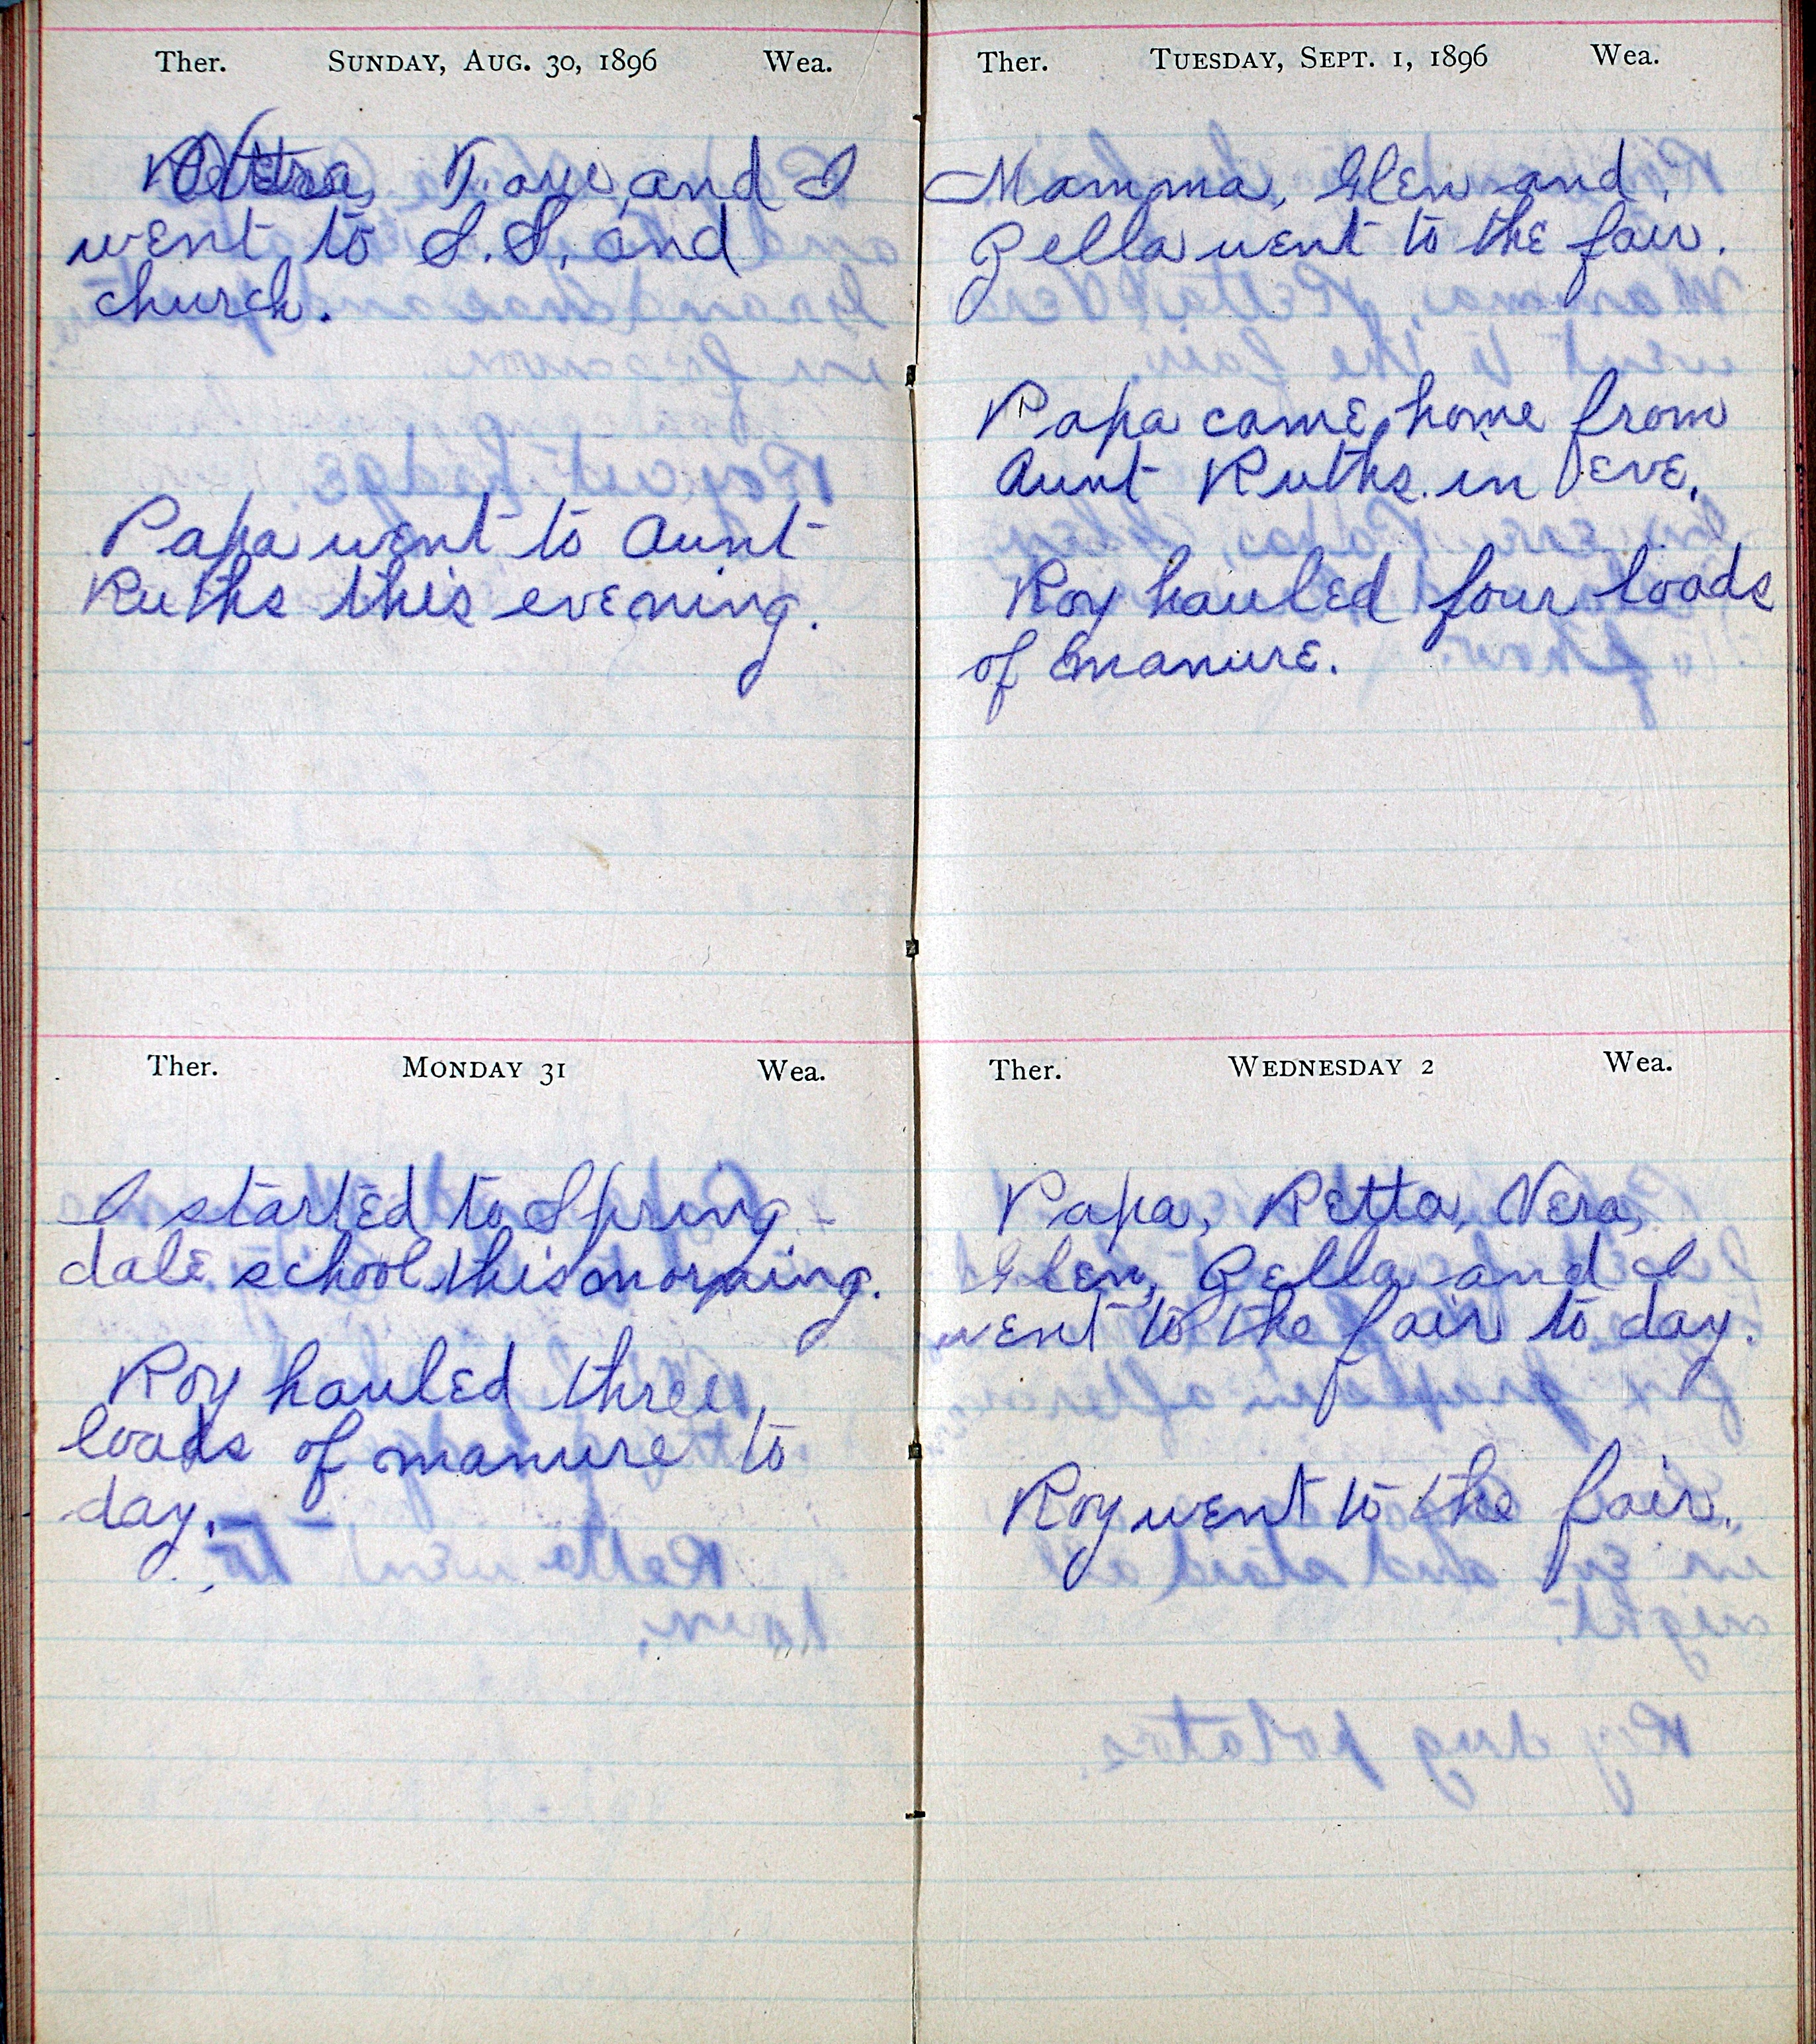 Ther. SUNDAY, AUG. 30, 1896 Wea.
and I
went to S.S. and
church.
Papa went to Aunt
Ruths this evening.
Ther. MONDAY 31 Wea.
I started to Spring-
dale school this morning.
Roy hauled three
loads of manure to
day.
Ther. TUESDAY, SEPT. 1, 1896 Wea.
Mamma, Glen and
Zella went to the fair.
Papa came home from
Aunt Ruths in eve.
Roy hauled four loads
of manure.
Ther. WEDNESDAY 2 Wea.
Papa, Retta, Vera,
Glen, Zella and I
went to the fair to day.
Roy went to the fair.